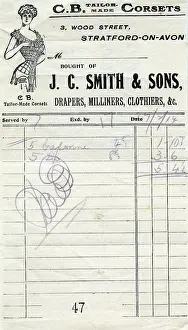 C.B. TAILOR MADE CORSETS
3, WOOD STREET,
STRATFORD-ON-AVON
M
BOUGHT OF
J. C. SMITH & SONS,
DRAPERS, MILLINERS, CLOTHIERS, &c.
C.B.
Tailor-Made Corsets
Served by 7 Exd. by Date
5
5
47